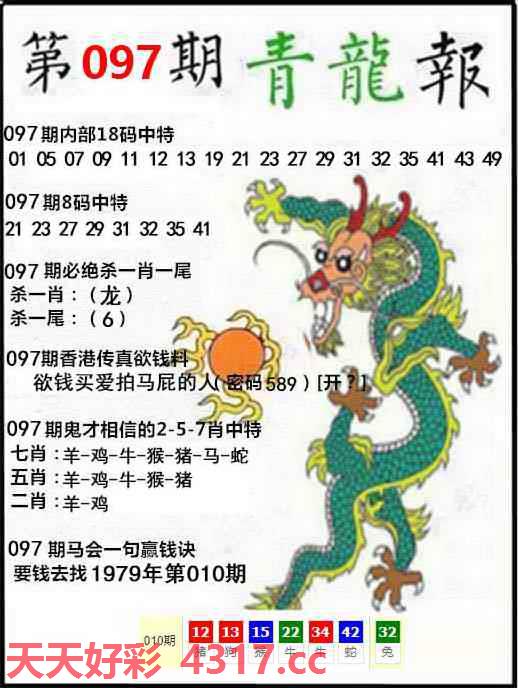 第097期 青龍報
097期内部18码中特
01 05 07 09 11 12 13 19 21 23 27 29 31 32 35 41 43 49
097期8码中特
21 23 27 29 31 32 35 41
097 期必绝杀一肖一尾
杀一肖：（龙）
杀一尾：（6）
097期香港传真欲钱料
欲钱买爱拍马屁的人（密码589）[开？]
097期鬼才相信的2-5-7肖中特
七肖：羊-鸡-牛-猴-猪-马-蛇
五肖：羊-鸡-牛-猴-猪
二肖：羊-鸡
097 期马会一句赢钱诀
要钱去找1979年第010期
010期 12 13 15 22 34 42 32
猪 狗 猴 牛 牛 蛇 兔
天天好彩 4317.cc